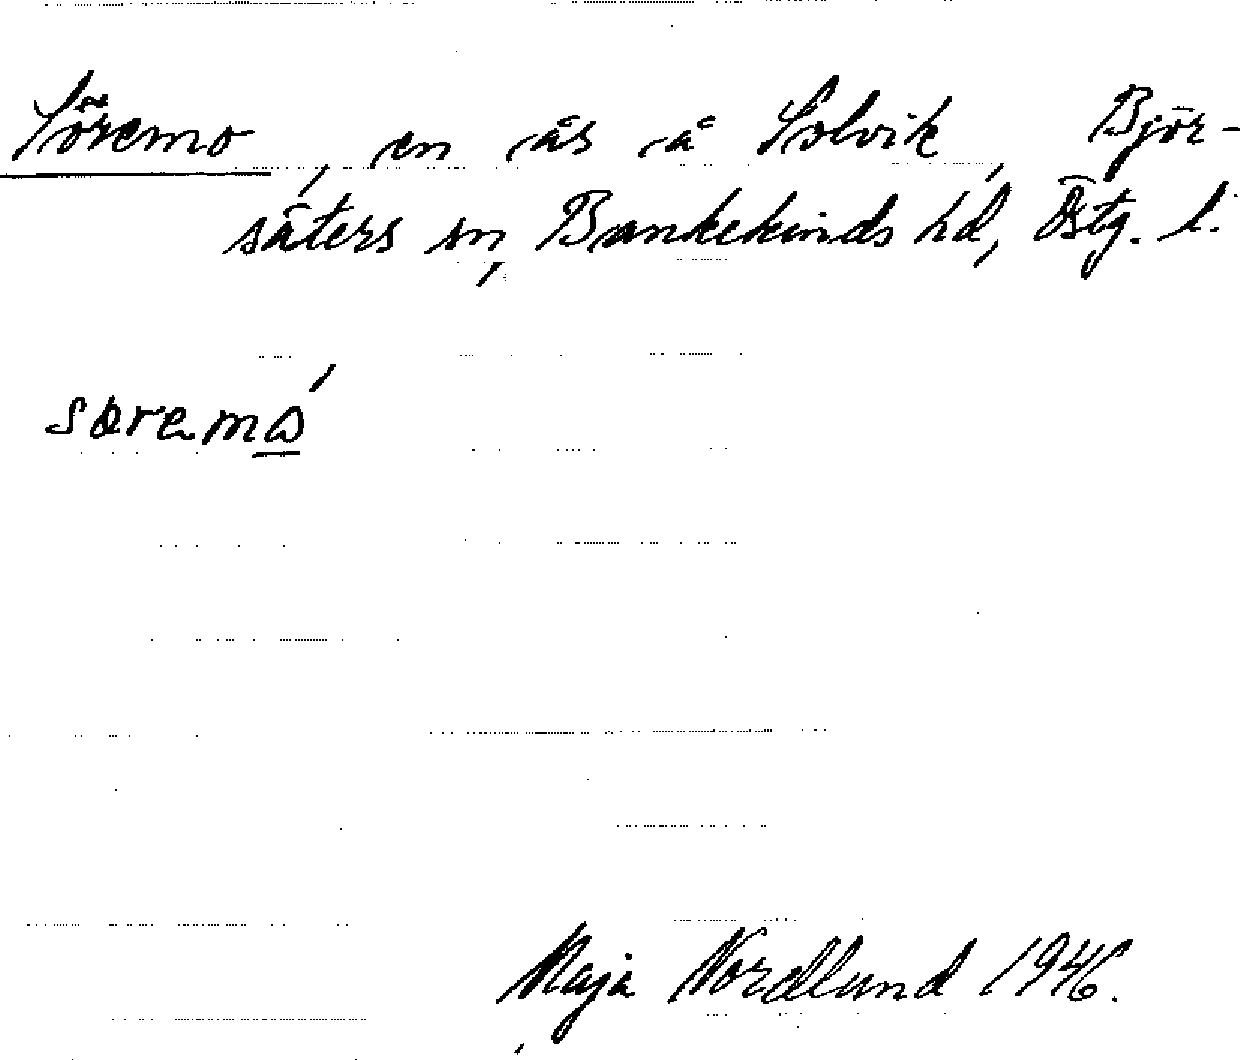 Söremo, en ås å Solvik, Björ-
säters sn, Bankekinds hd, Östg. l.
söremo´
Maja Nordlund 1946.